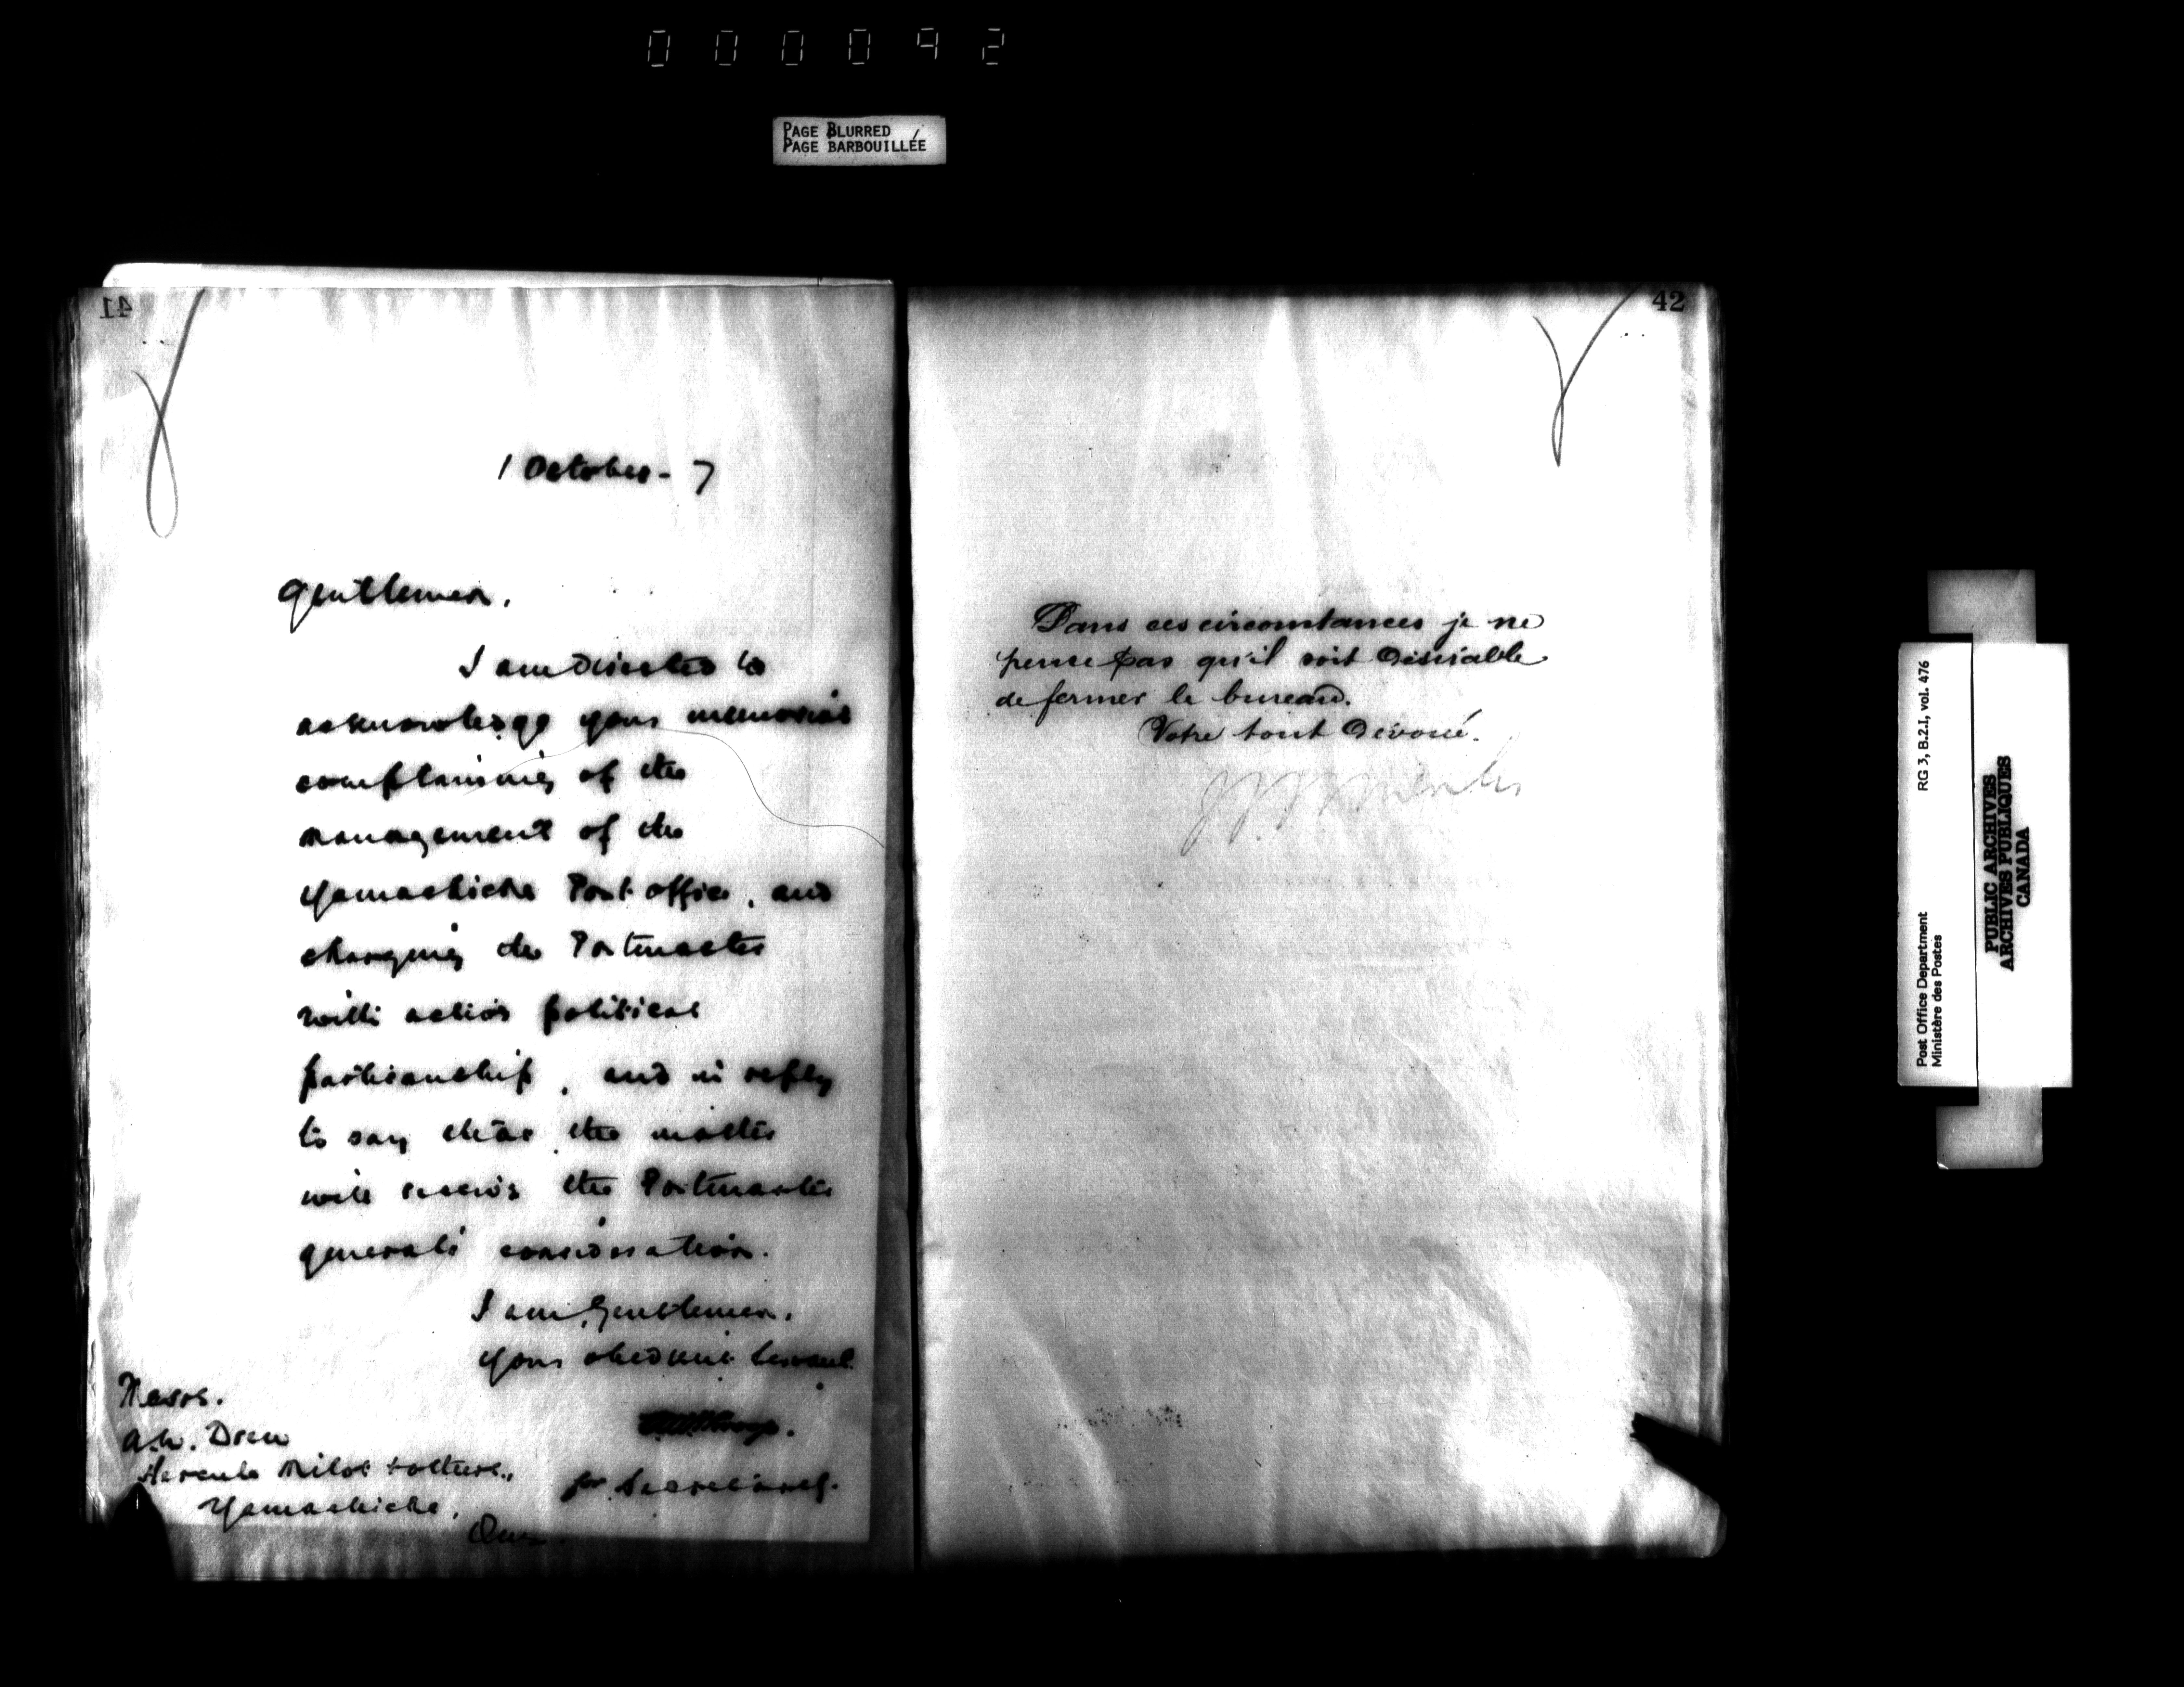 000092
PAGE BLURRED
PAGE BARBOUILLÉE
41
1 October - 7
Gentlemen,
I am directed to
acknowledge your memorial
complaining of the
management of the
Yamachiche Post office, and
charging the Postmaster
with active political
partisanship, and in reply
to say that the matter
will receive the Postmaster
General's consideration.
I am, Gentlemen,
Your obedient Servant.
for Secretary.
Messrs.
A.W. Drew
Hercule Milot & others,
Yamachiche,
Que.
42
Dans ces circomtances je ne
pense pas qu'il soit désirable
de fermer le bureau.
Votre tout dévoué.
Post Office Department
Ministère des Postes
RG 3, B.2.I, vol. 476
PUBLIC ARCHIVES
ARCHIVES PUBLIQUES
CANADA